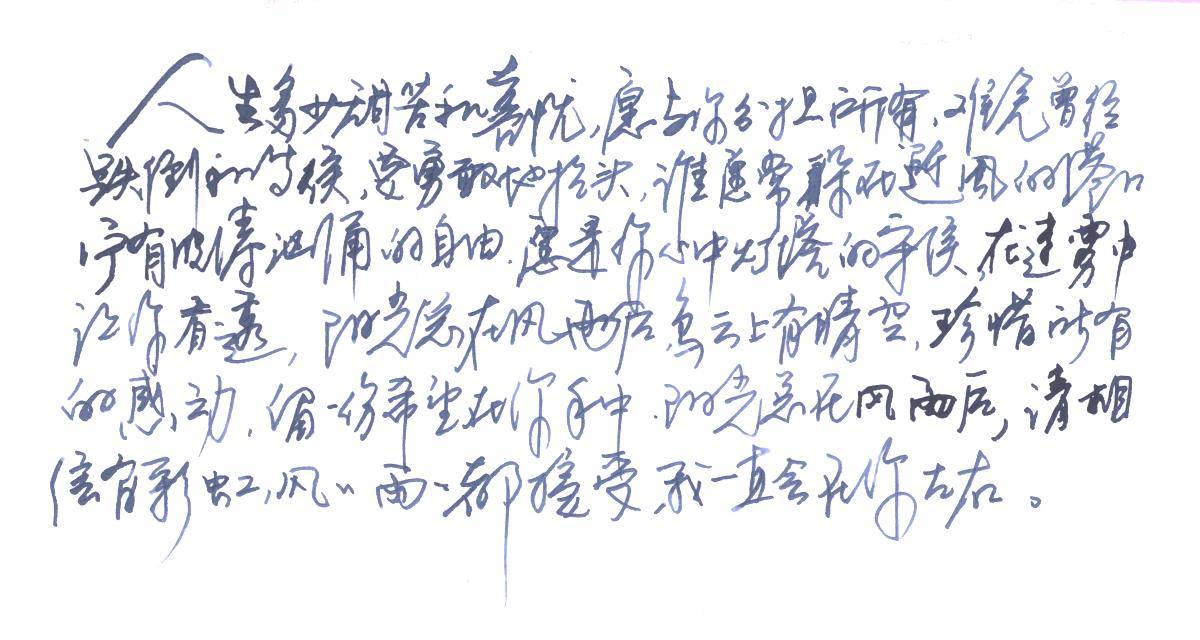 人生多少甜苦和喜忧,愿与你分担所有,难免曾经
跌倒和等候,要勇敢地抬头,谁愿常躲在避风的港口
宁有波涛汹涌的自由.愿是你心中灯塔的守候,在迷雾中
让你看透,阳光总在风雨后乌云上有晴空,珍惜所有
的感动,留一份希望在你手中.阳光总在风雨后,请相
信有彩虹,风〃雨〃都接受,我一直会在你左右。